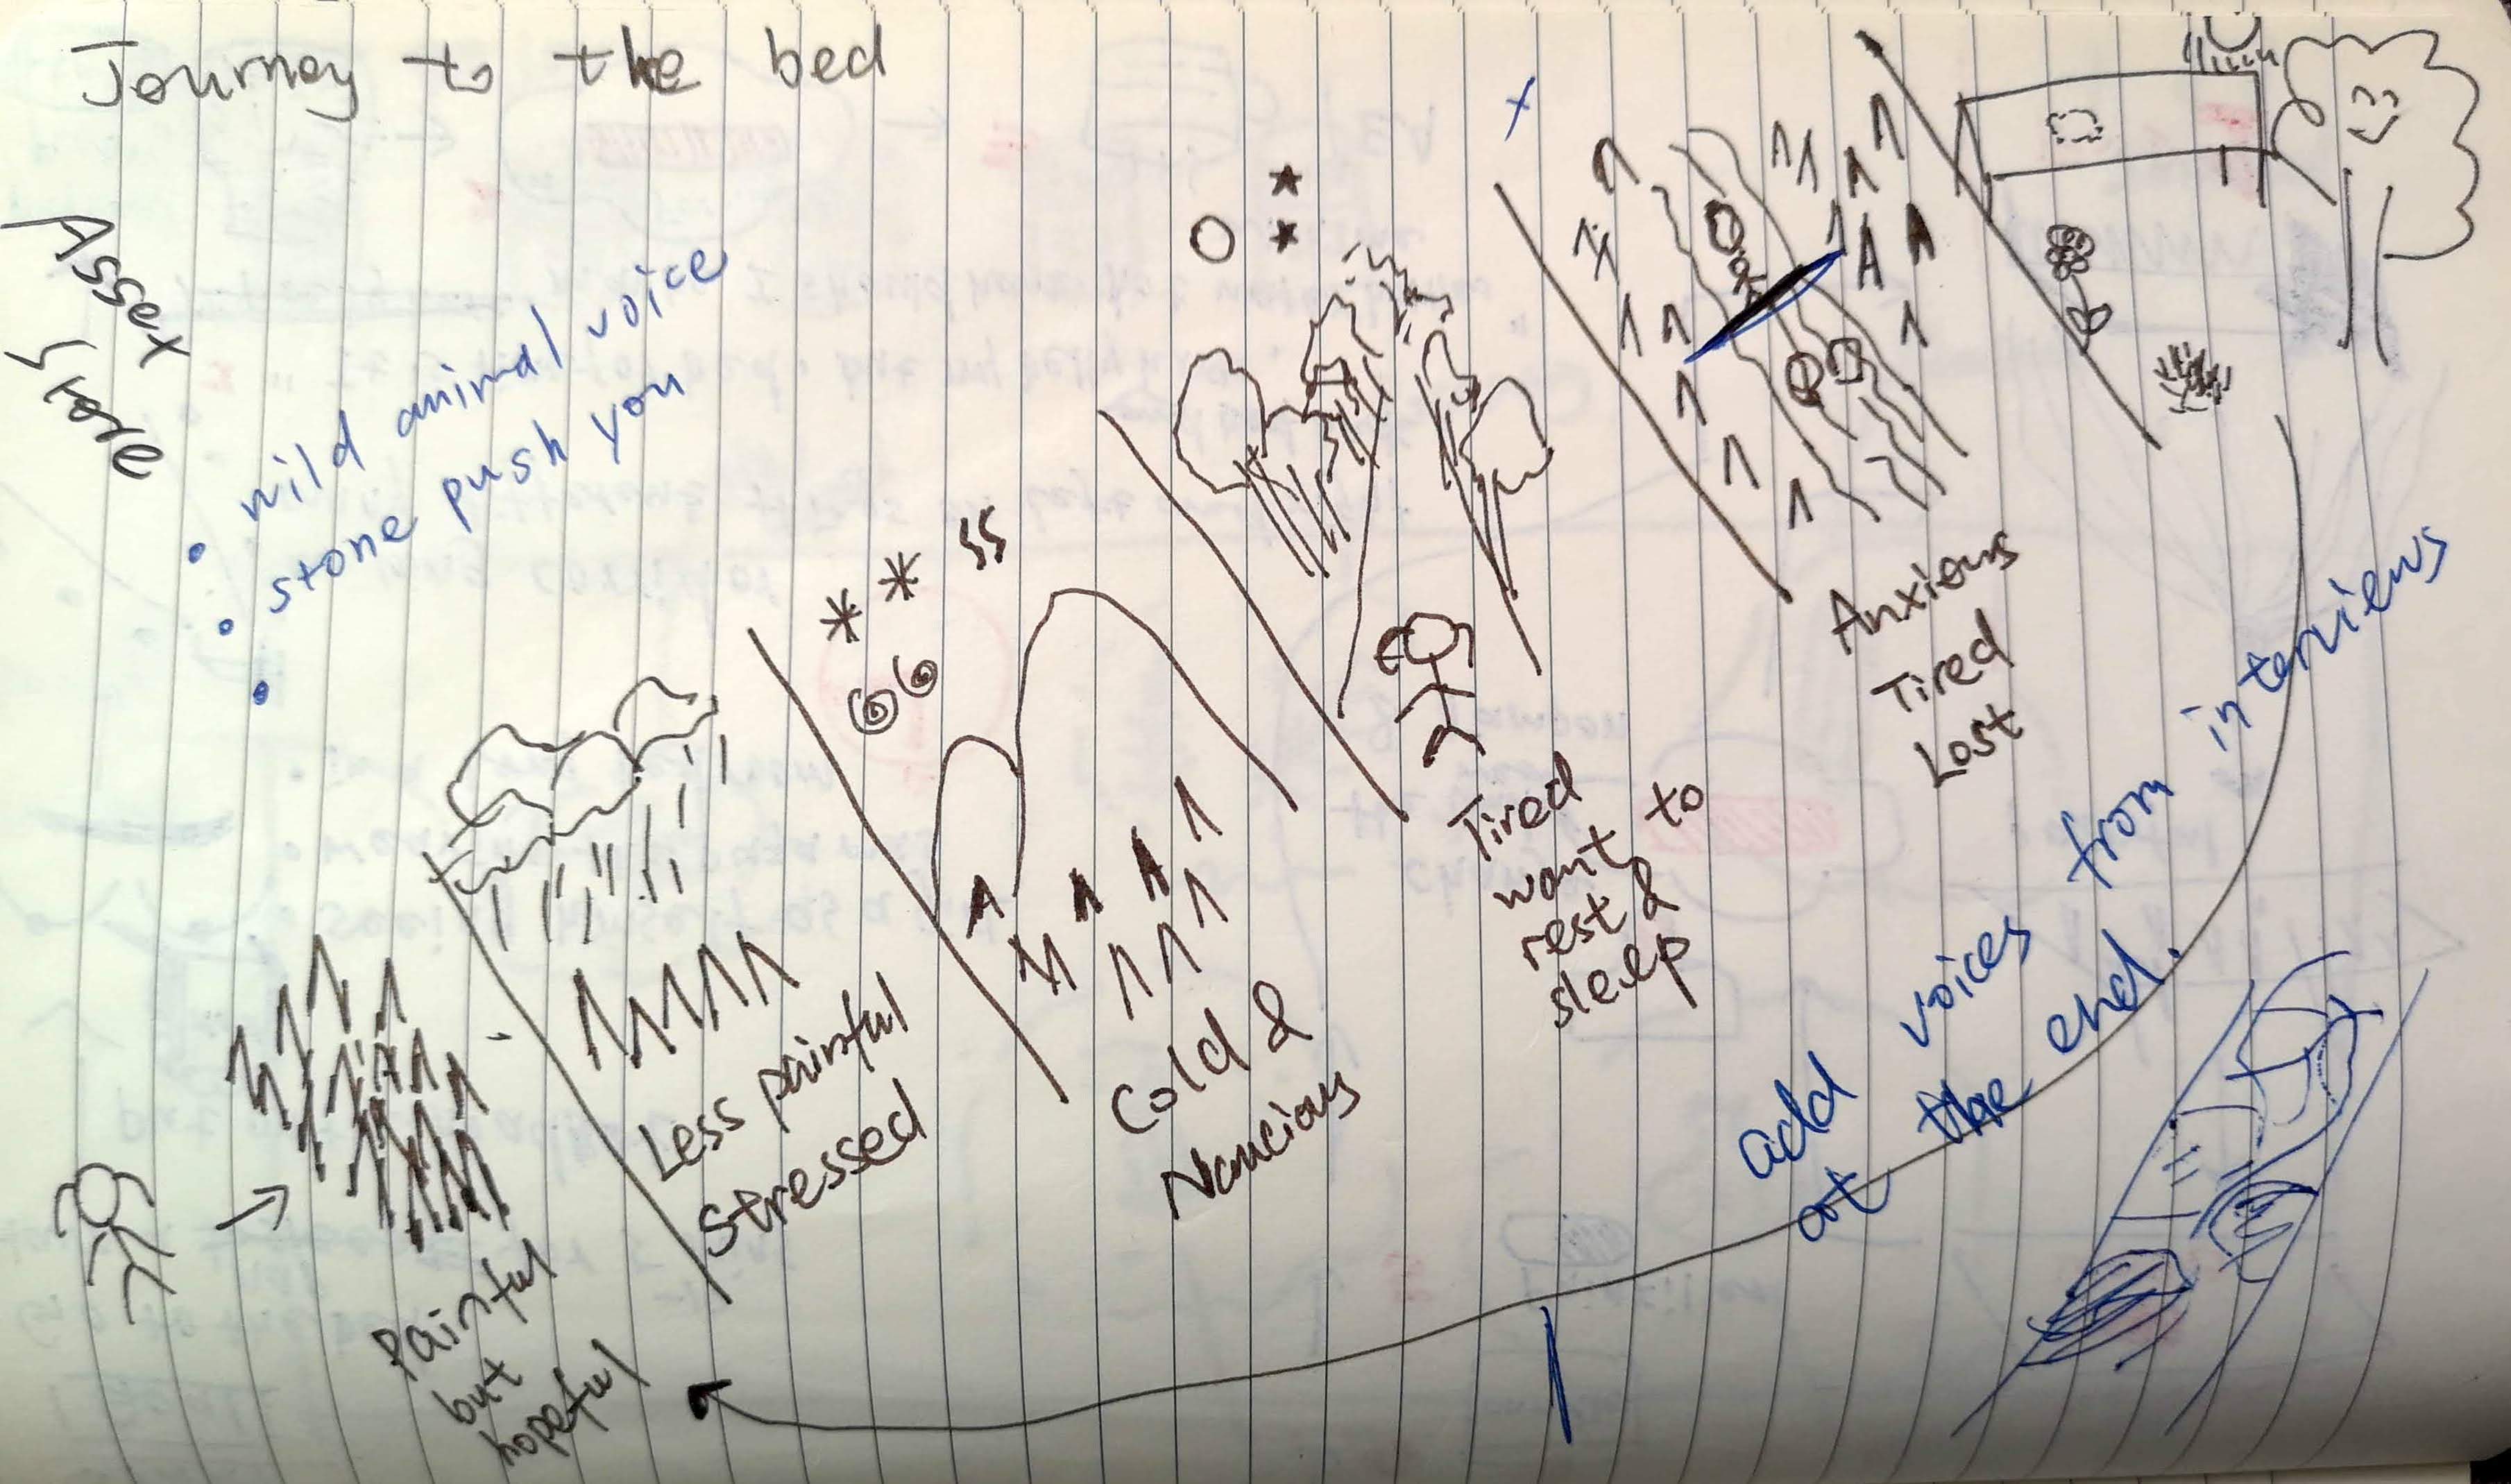 Journey to the bed
Assex
play
• wild animal voice
• stone push you
•
Painful
but
hopeful
Less painful
Stressed
Cold &
Nancious
Tired
want to
rest &
sleep
Anxious
Tired
Lost
add voices from interviews
at the end.